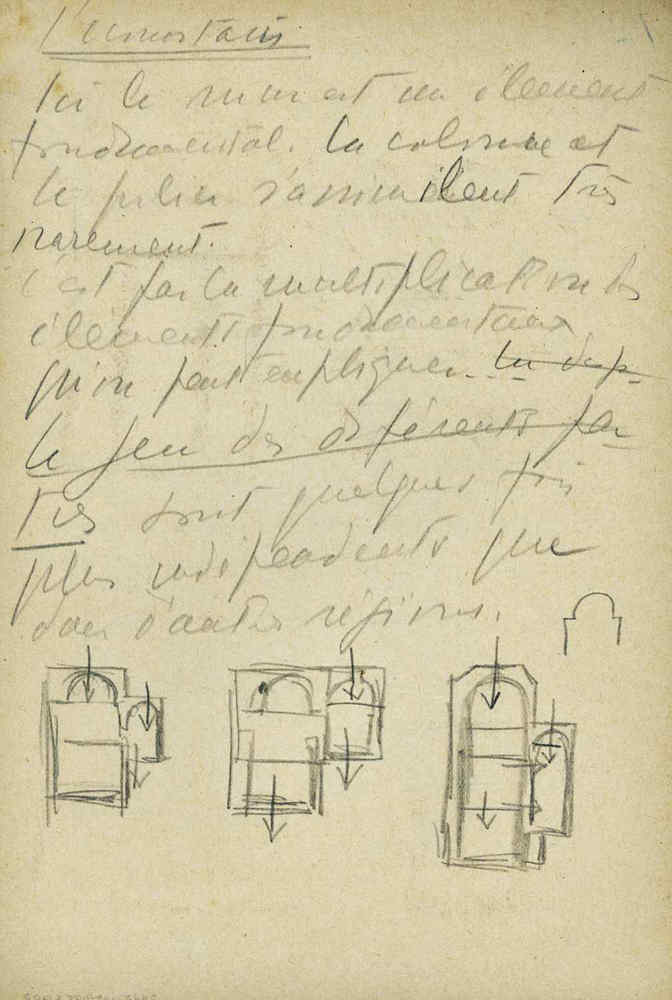 Ici le mur est un élément
fondamental. La colonne et
le pilier s'assimilent très
rarement.
c'est par la multiplication des
éléments fondamentaux
qu'on peut expliquer. La
le jeu des différents
sont quelques fois
plus indépendants que
dans d'autres régions.